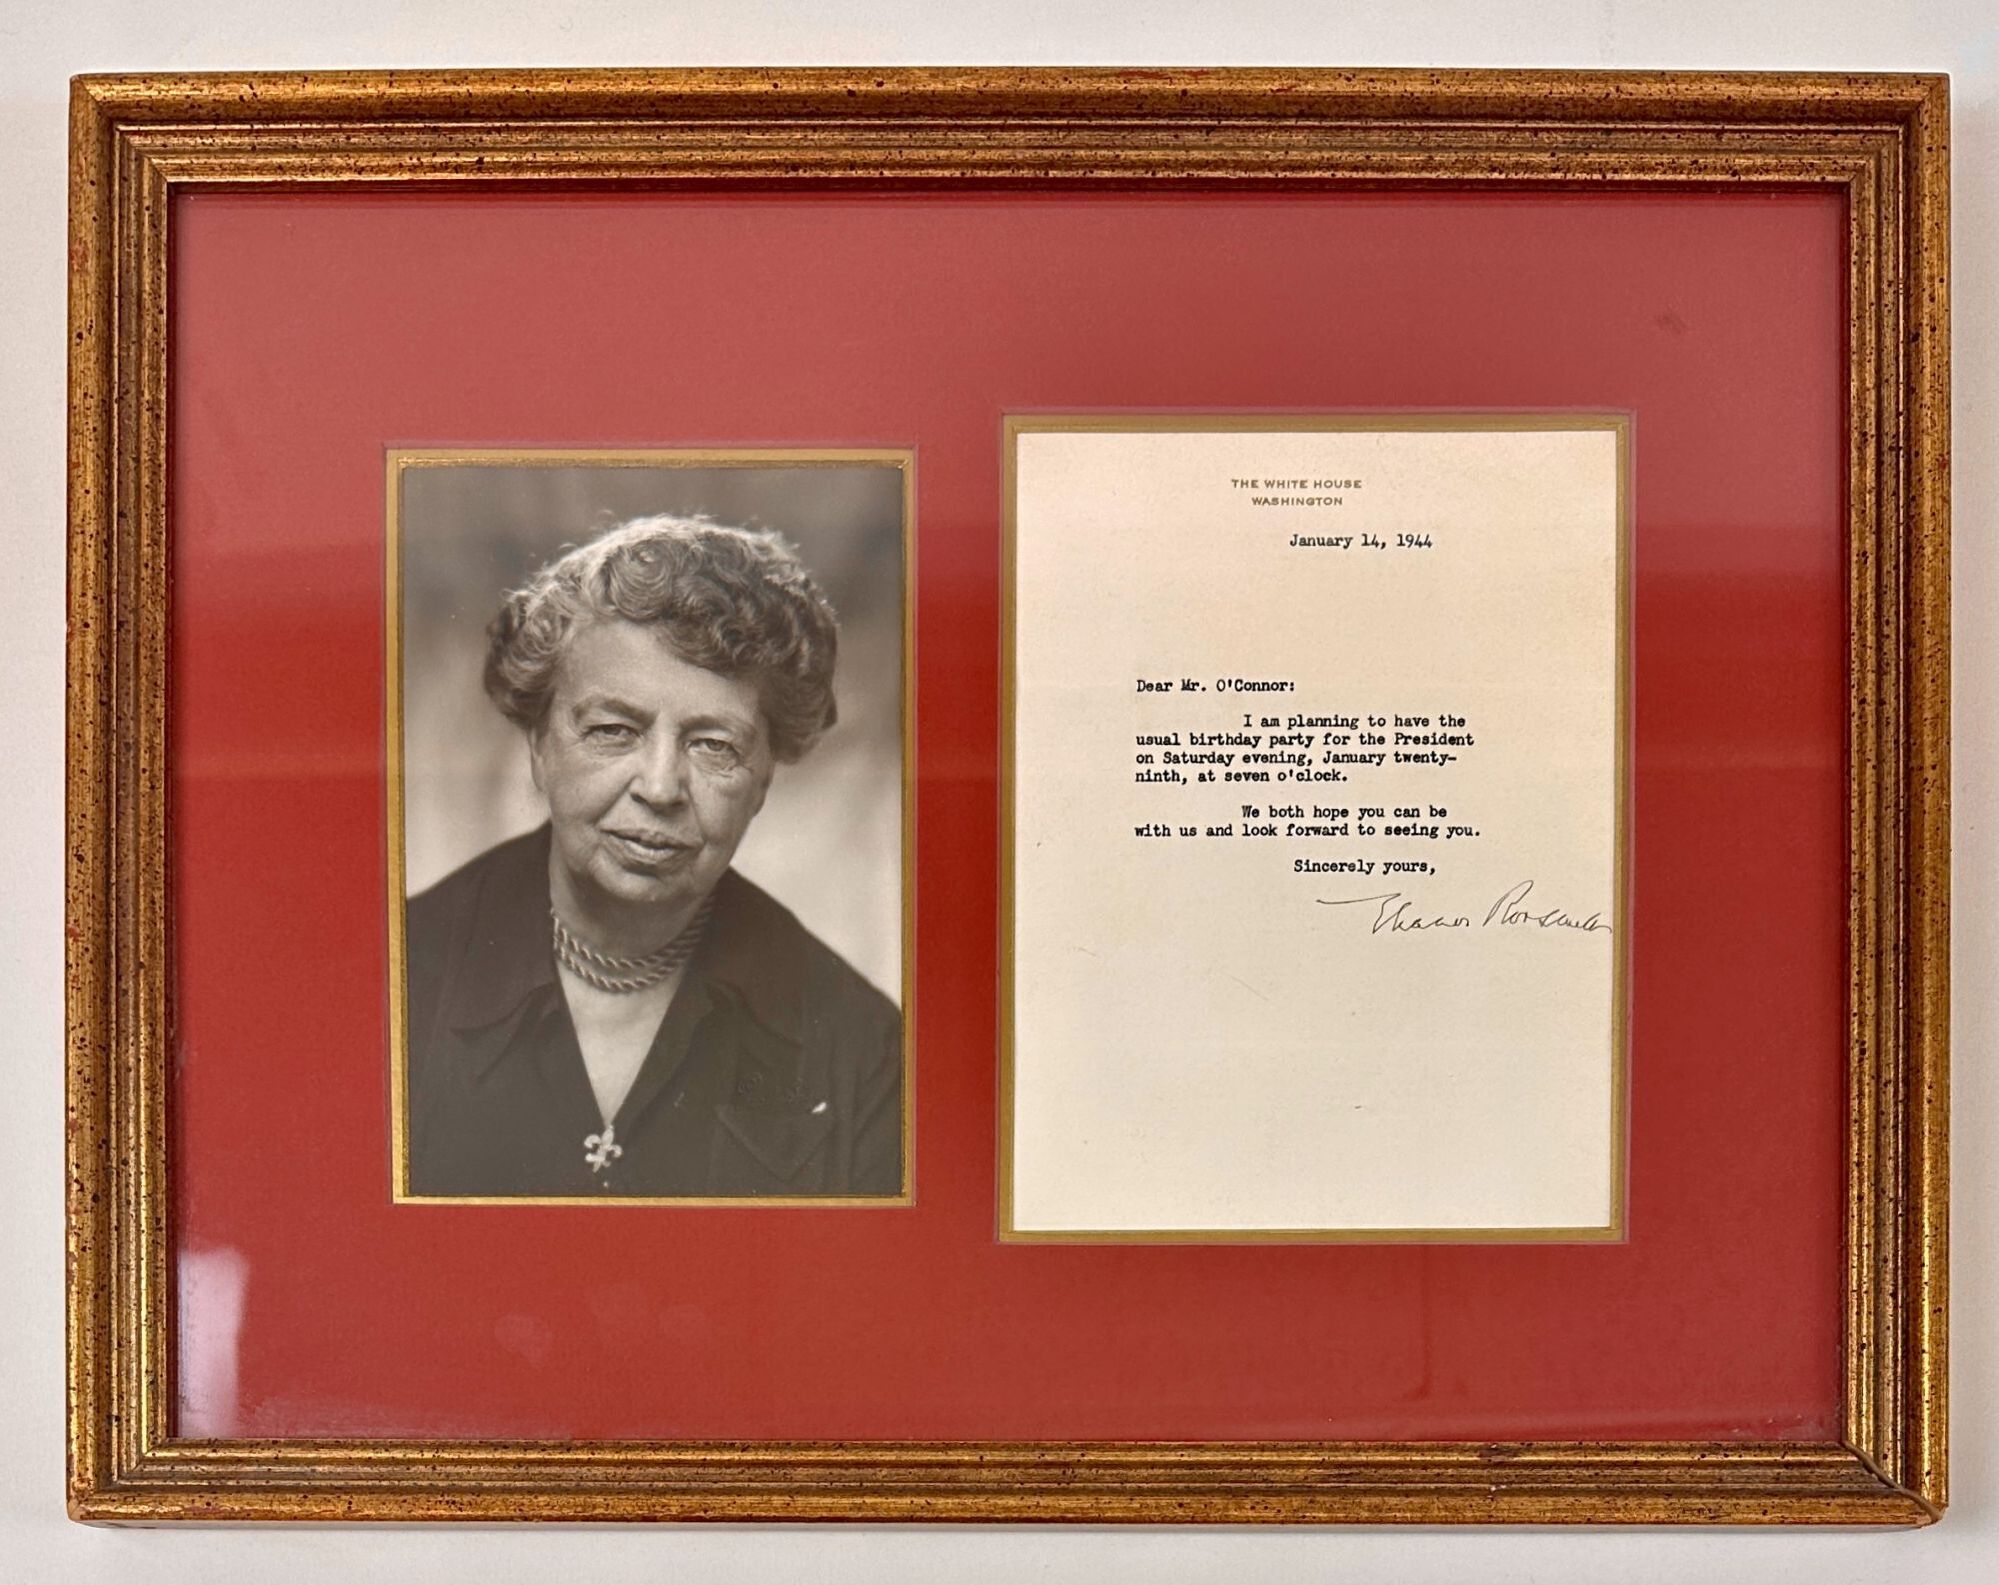 THE WHITE HOUSE
WASHINGTON
January 14, 1944
Dear Mr. O'Connor:
I am planning to have the
usual birthday party for the President
on Saturday evening, January twenty-
ninth, at seven o'clock.
We both hope you can be
with us and look forward to seeing you.
Sincerely yours,
Eleanor Roosevelt